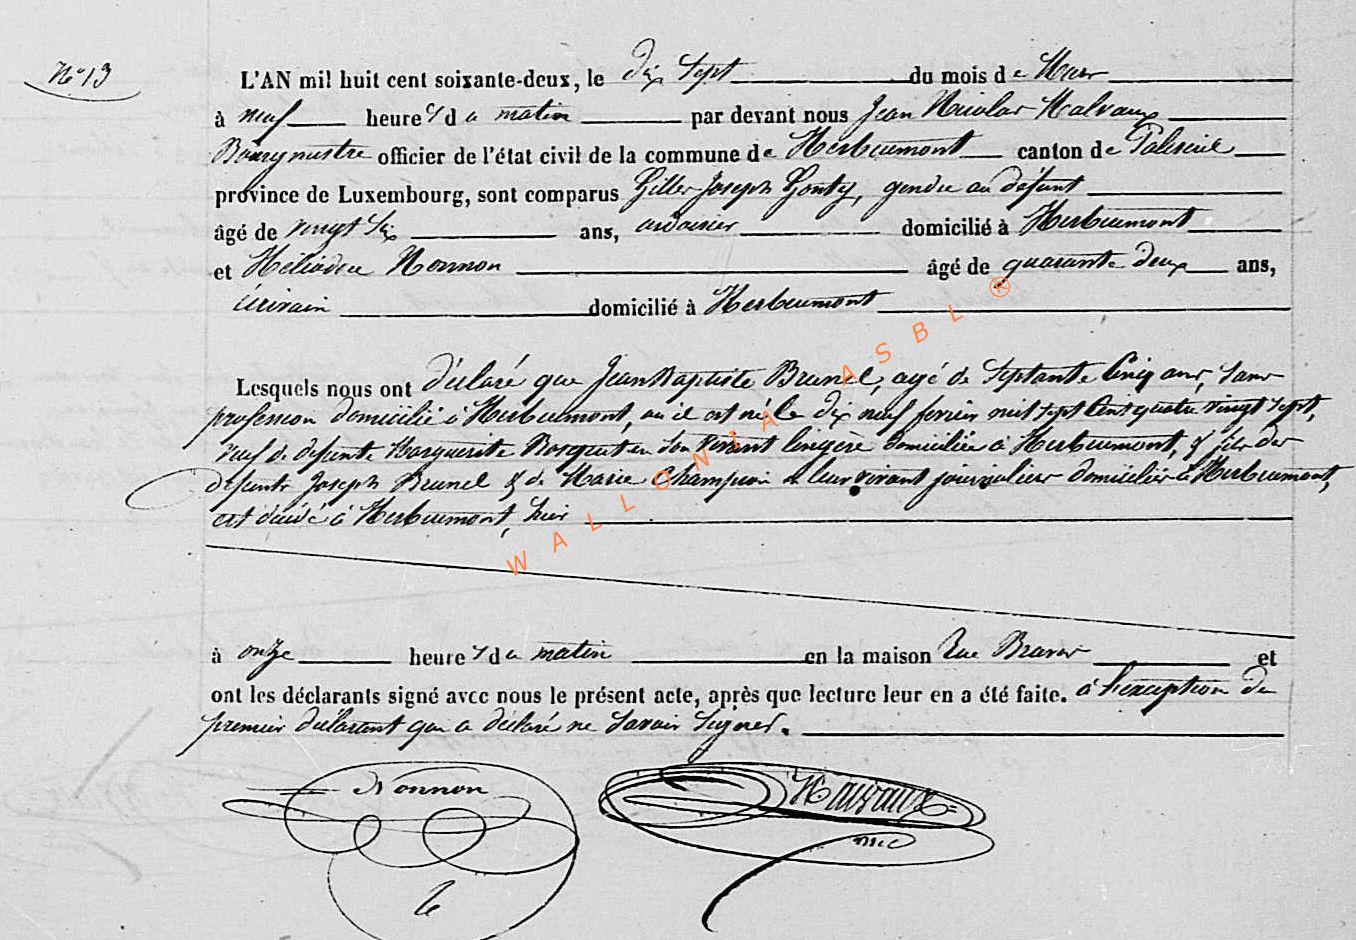 N° 13
L'AN mil huit cent soixante-deux, le dix sept du mois de Mars
à neuf heures du matin par devant nous Jean Nicolas Malvaux
Bourgmestre officier de l'état civil de la commune de Herbeumont canton de Paliseul
province de Luxembourg, sont comparus Gilles Joseph Gonty, gendre au défunt
âgé de vingt six ans, ardoisier domicilié à Herbeumont
et Héliodore Nonnon âgé de quarante deux ans,
écrivain domicilié à Herbeumont
Lesquels nous ont déclaré que Jean Baptiste Brunel, agé de septante cinq ans, sans
profession domicilié à Herbeumont, où il est né le dix neuf fevrier mil sept cent quatre vingt sept,
veuf de défunte Marguerite en son vivant lingère domiciliée à Herbeumont, & fils des
défunts Joseph Brunel & de Marie Champion en leur vivant journaliers domiciliés à Herbeumont,
est décédé à Herbeumont, hier
à onze heures du matin en la maison Rue Bravor et
ont les déclarants signé avec nous le présent acte, après que lecture leur en a été faite. à l'exception du
premier déclarant qui a déclaré ne savoir signer.
Nonnon
Malvaux
WALLONIA ASBL ®